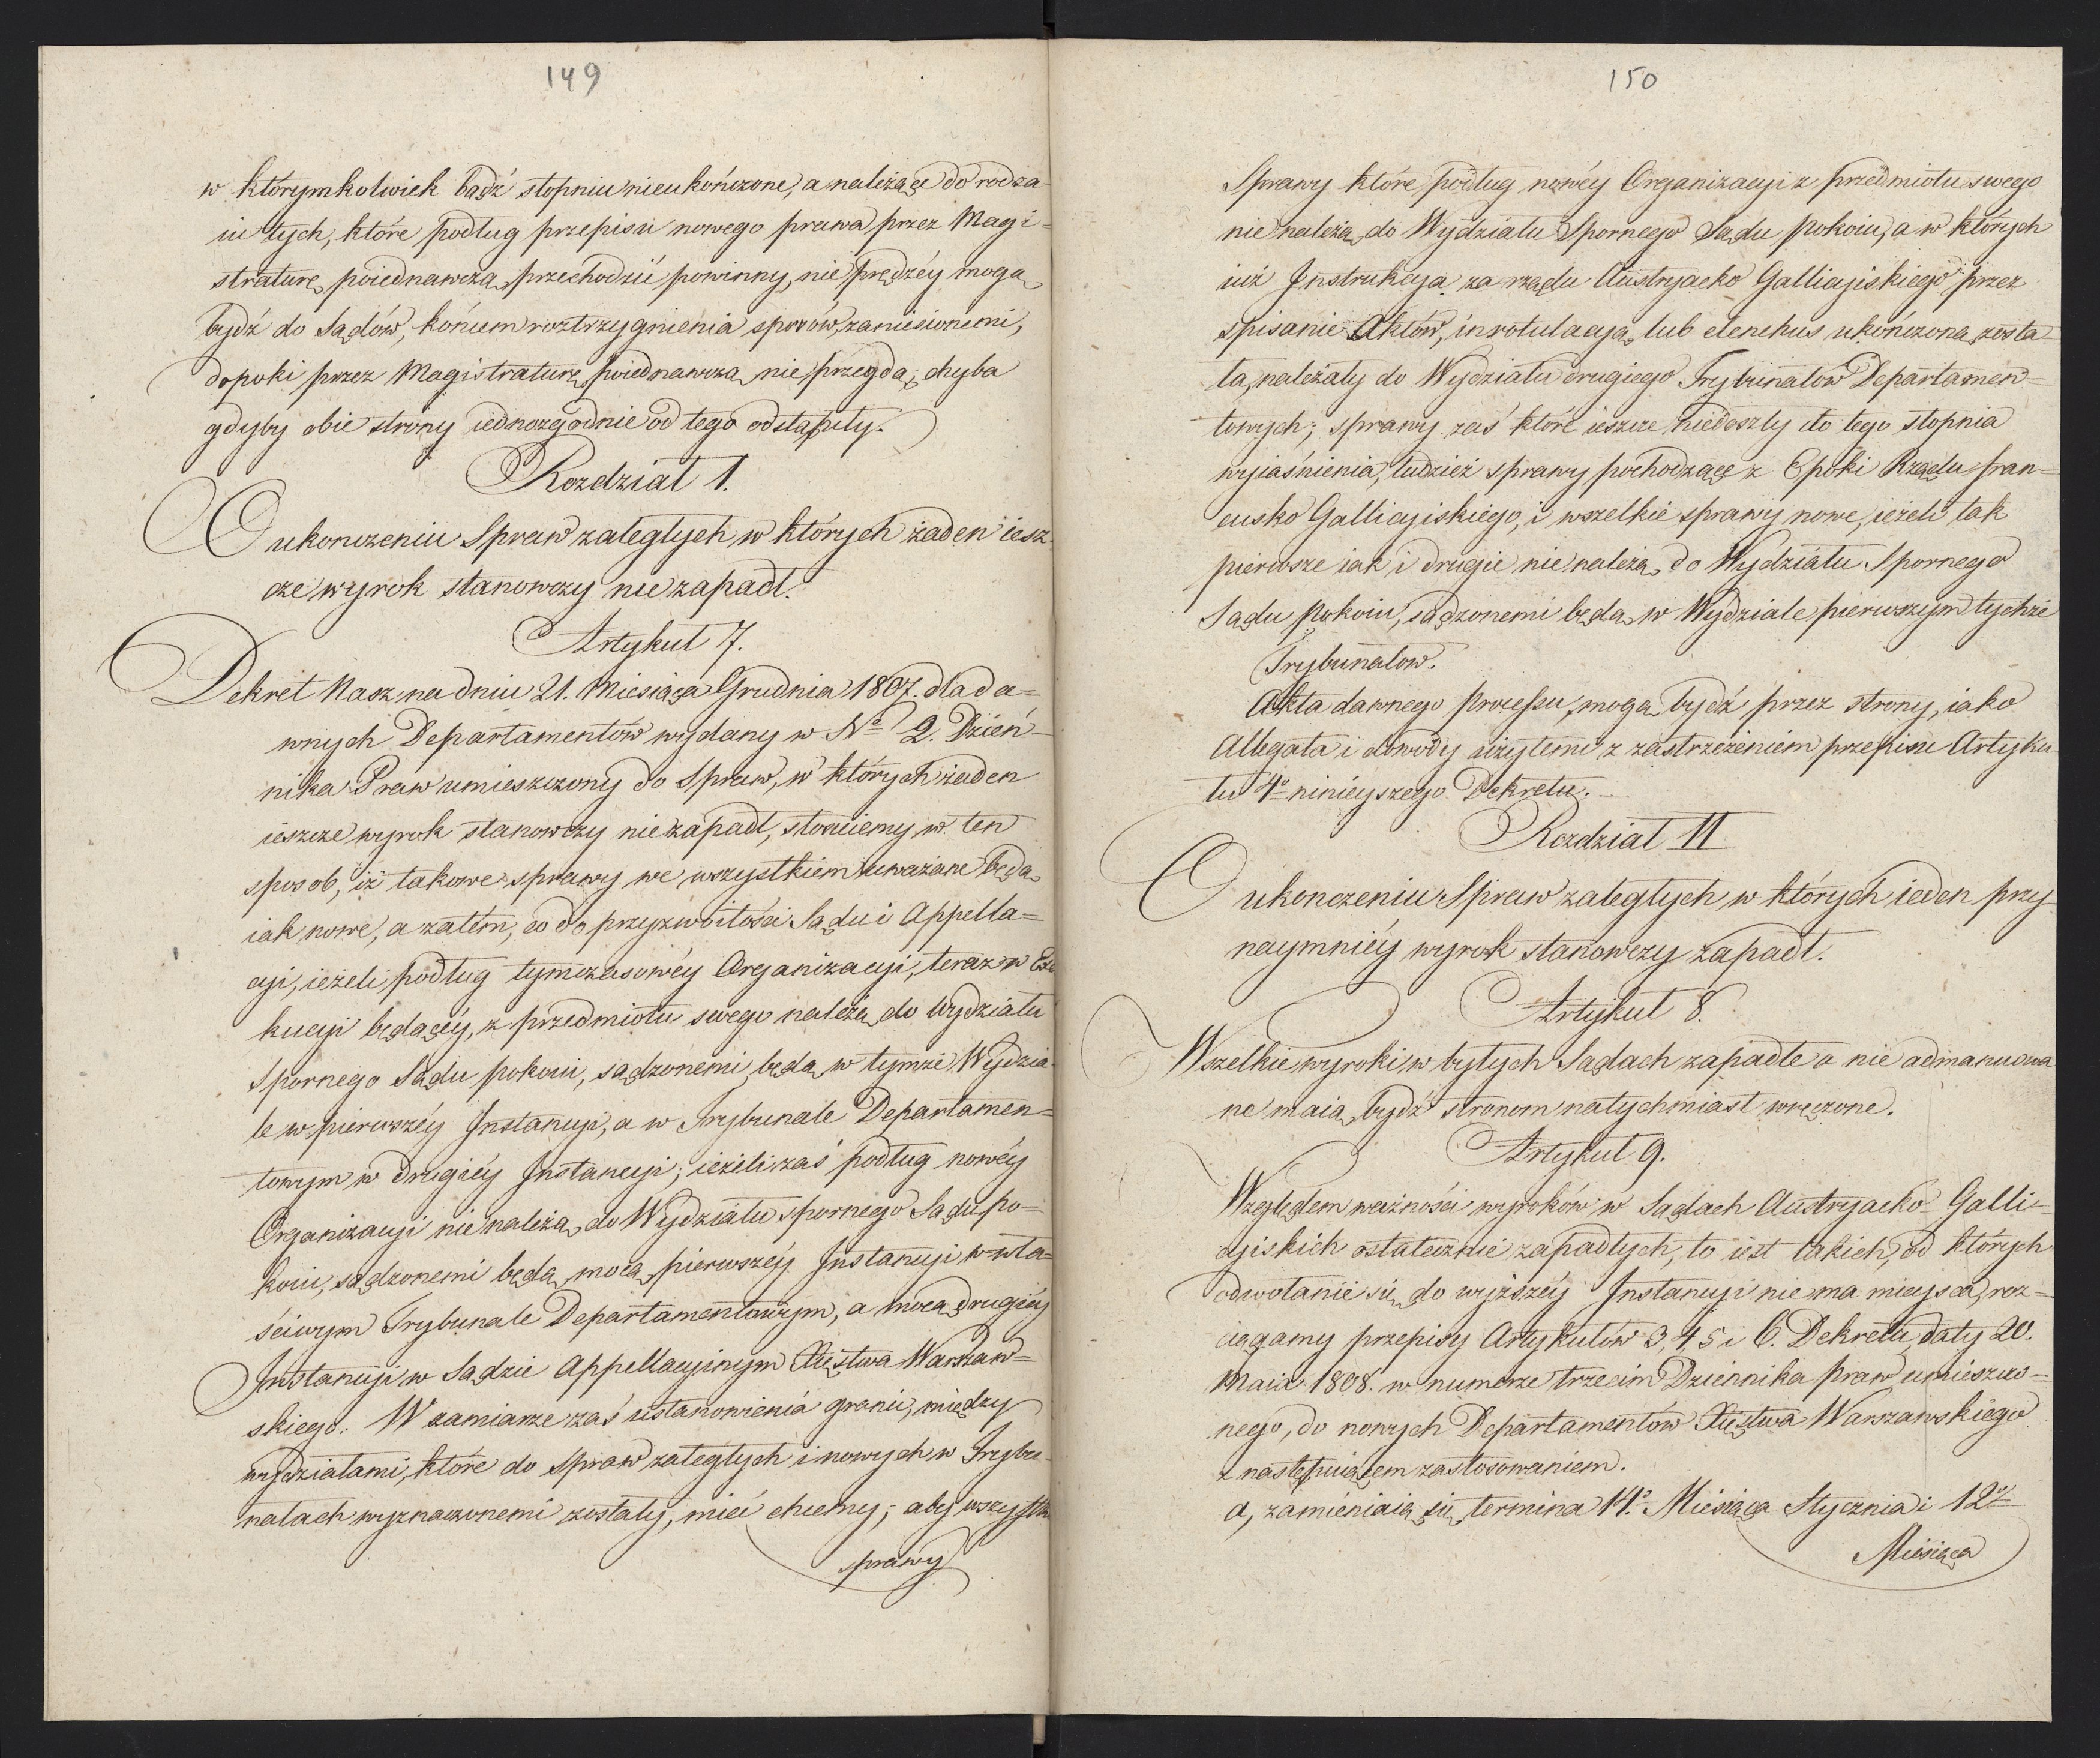 149
w którymkolwiek bądź stopniu nieukończone, a należące do rodza-
iu tych, które podług przepisu nowego prawa przez Magi-
straturę poiednawczą przechodzić powinny, nie prędzéy mogą
bydź do Sądów, końcem roztrzygnienia sporów, zaniesionemi,
dopoki przez Magistraturę poiednawczą nie przeydą; chyba
gdyby obie strony iednozgodnie od tego odstąpiły.
Rozdział 1.
O ukonczeniu Spraw zaległych, w których żaden iesz-
cze wyrok stanowczy nie zapadł.
Artykuł 7.
Dekret Nasz na dniu 21. Miesiąca Grudnia 1807. dla da=
wnych Departamentów wydany w No 2. Dzień-
nika Praw umieszczony do Spraw, w których żaden
ieszcze wyrok stanowczy nie zapadł, stosuiemy w ten
sposob, iż takowe sprawy we wszystkiem uważane będą
iak nowe, a zatém, co do przyzwoitości Sądu i Appella=
cyi, ieżeli podług tymczasowéy Organizacyi, teraz w Exe
kucyi będącéy, z przedmiotu swego należą do Wydziału
Spornego Sądu pokoiu, sądzonemi będą w tymże Wydzia-
le w pierwszéy Instancyi, a w Trybunale Departamen=
towym w drugiéy Instancyi; ieżeli zaś podług nowéy
Organizacyi nie należą do Wydziału spornego Sądu po=
koiu, sądzonemi będą mocą pierwszéy Instancyi w wła=
ściwym Trybunale Departamentowym, a mocą drugiéy
Instancyi w Sądzie Appellacyinym Xięstwa Warszaw=
skiego. W zamiarze zaś ustanowienia granic, między
wydziałami, które do Spraw zaległych i nowych w Trybu-
nałach wyznaczonemi zostały, mieć chcemy; aby wszystkie
sprawy
150
Sprawy które podług nowéy Organizacyi z przedmiotu swego
nie należą do Wydziału Spornego Sądu pokoiu, a w których
iuż Instrukcya za rządu Austryacko Gallicyiskiego przez
spisanie Aktów, inrotulacyą, lub elenchus ukończoną zosta-
ła, należały do Wydziału drugiego Trybunałów Departamen=
towych; sprawy zaś które ieszcze niedoszły do tego stopnia
wyiaśnienia, tudzież sprawy pochodzące z Epoki Rządu fran=
cusko Gallicyiskiego, i wszelkie sprawy nowe, ieżeli tak
pierwsze iak i drugie nie należą do Wydziału Spornego
Sądu pokoiu, sądzonemi będą w Wydziale pierwszym tychże
Trybunałow.
Akta dawnego Processu, mogą bydź przez strony, iako
Allegata i dowody użytemi z zastrzeżeniem przepisu Artyku
łu 4o niniéyszego Dekretu.
Rozdział II
O ukonczeniu Spraw zaległych, w których ieden przy-
naymniéy wyrok stanowczy zapadł.
Artykuł 8.
Wszelkie wyroki w byłych Sądach zapadłe a nie admanuowa
ne maią bydź stronom natychmiast wręczone.
Artykuł 9.
Względem ważności wyroków w Sądach Austryacko Galli=
cyiskich ostatecznie zapadłych, to iest takich, od których
odwołanie się do wyższéy Instancyi nie ma mieysca, roz=
ciągamy przepisy Artykułów 3, 4, 5 i 6. Dekretu daty 20.
Maia 1808. w numerze trzecim Dziennika praw umieszczo=
nego, do nowych Departamentów Xięstwa Warszawskiego
z następuiącem zastosowaniem.
a, zamieniaią się termina 14o Miesiąca Stycznia i 12o
Miesiąca